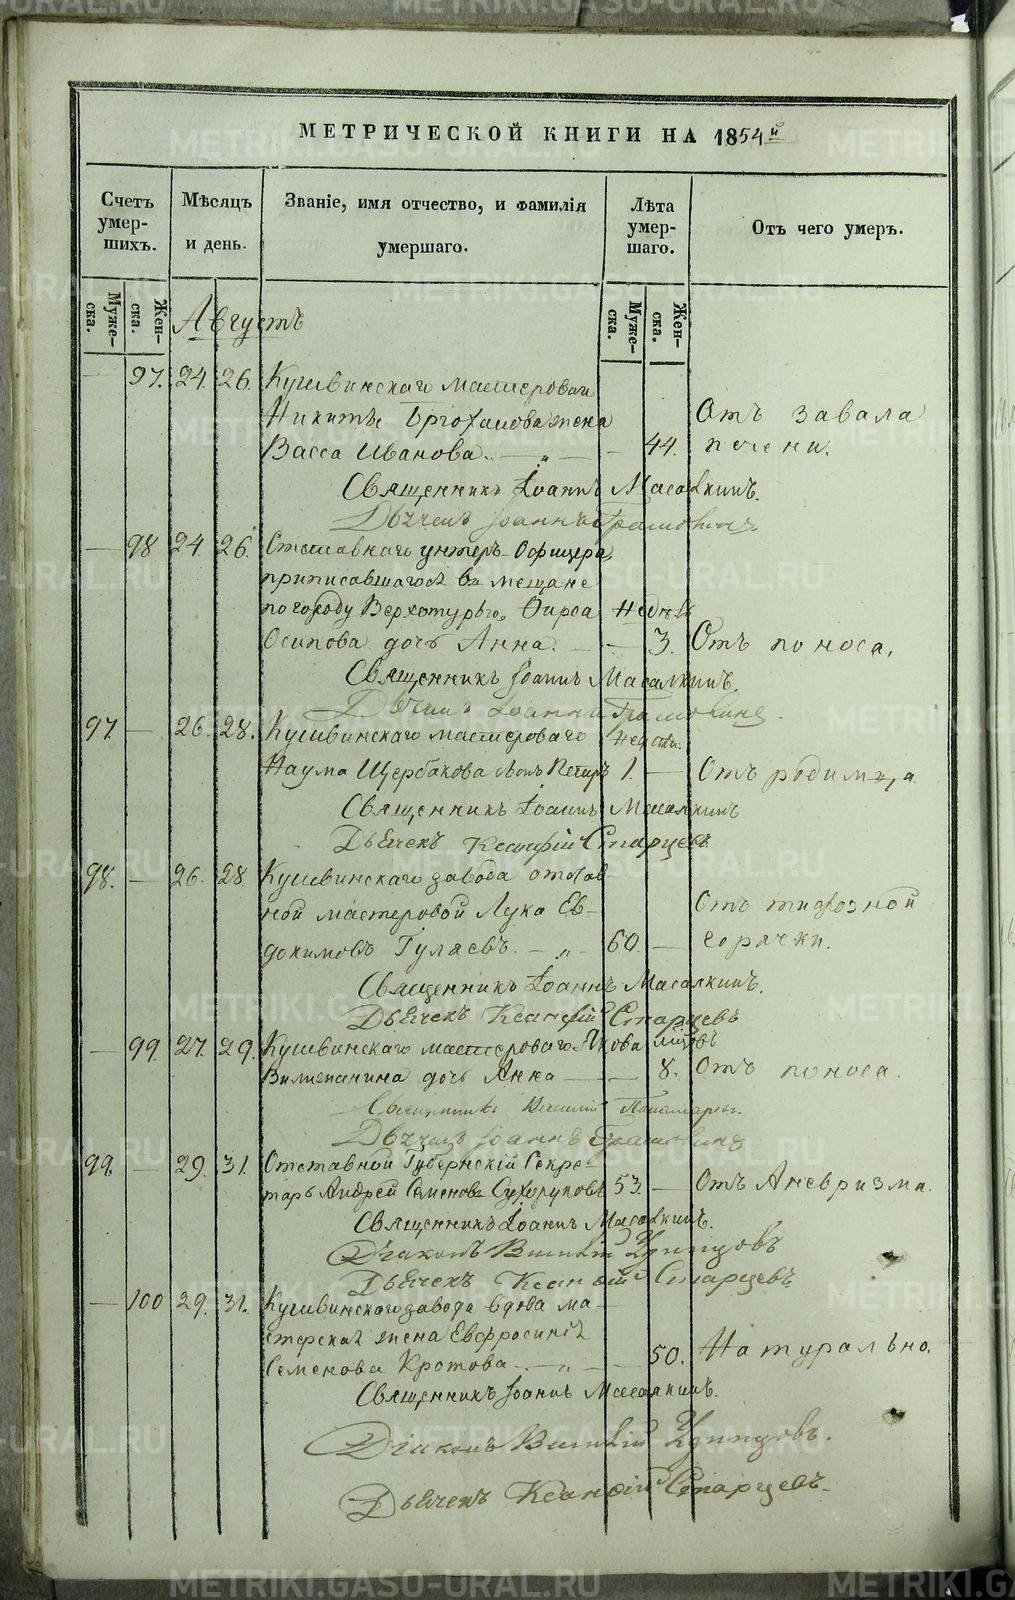 МЕТРИЧЕСКОЙ КНИГИ НА 1854й
Счетъ умер- шихъ.
Мѣсяцъ и день.
Званіе, имя отчество, и фамилія умершаго.
Лѣта умер- шаго.
Отъ чего умеръ.
Муже- ска.
Жен- ска.
Муже- ска.
Жен- ска.
Августъ
97. 24. 26. Кушвинскаго мастероваго
Никиты жена Отъ завала
Васса Иванова. — „ — 44. печени.
Священникъ Іоаннъ Масалкинъ.
Дьячекъ Іоаннъ
— 98 24. 26. Отставнаго унтеръ-Офицера,
приписавшагося въ мещане
по городу Верхотурью, Фирса Недѣль
Осипова дочь Анна. — — 3. Отъ поноса.
Священникъ Іоаннъ Масалкинъ.
Дьячекъ Іоаннъ
97. — 26. 28. Кушвинскаго мастероваго Недѣли.
Наума Щербакова сынъ Петръ 1. — Отъ родимца
Священникъ Іоаннъ Масалкинъ
Дьячекъ Ксанфій Старцевъ
98. — 26. 28. Кушвинскаго завода отстав-
ной мастеровой Лука Ев- Отъ тифозной
докимовъ Гуляевъ. — „ — 60. — горячки.
Священникъ Іоаннъ Масалкинъ.
Дьячекъ Ксанфій Старцевъ
— 99. 27. 29. Кушвинскаго мастероваго Якова мѣсяцовъ
дочь Анна — — 8. Отъ поноса.
Священникъ Василій Пономаревъ.
Дьячекъ Іоаннъ
99. — 29. 31. Отставной Губернскій Секре-
тарь Андрей Семеновъ Сухоруковъ 53. — Отъ Аневризма.
Священникъ Іоаннъ Масалкинъ.
Діаконъ Василій Удинцовъ
Дьячекъ Ксанфій Старцевъ
— 100 29. 31. Кушвинскаго завода вдова ма-
стерская жена Евфросинія
Семенова Кротова — „ — 50. Натурально.
Священникъ Іоаннъ Масалкинъ.
Діаконъ Василій Удинцовъ.
Дьячекъ Ксанфій Старцевъ.
METRIKI.GASO-URAL.RU